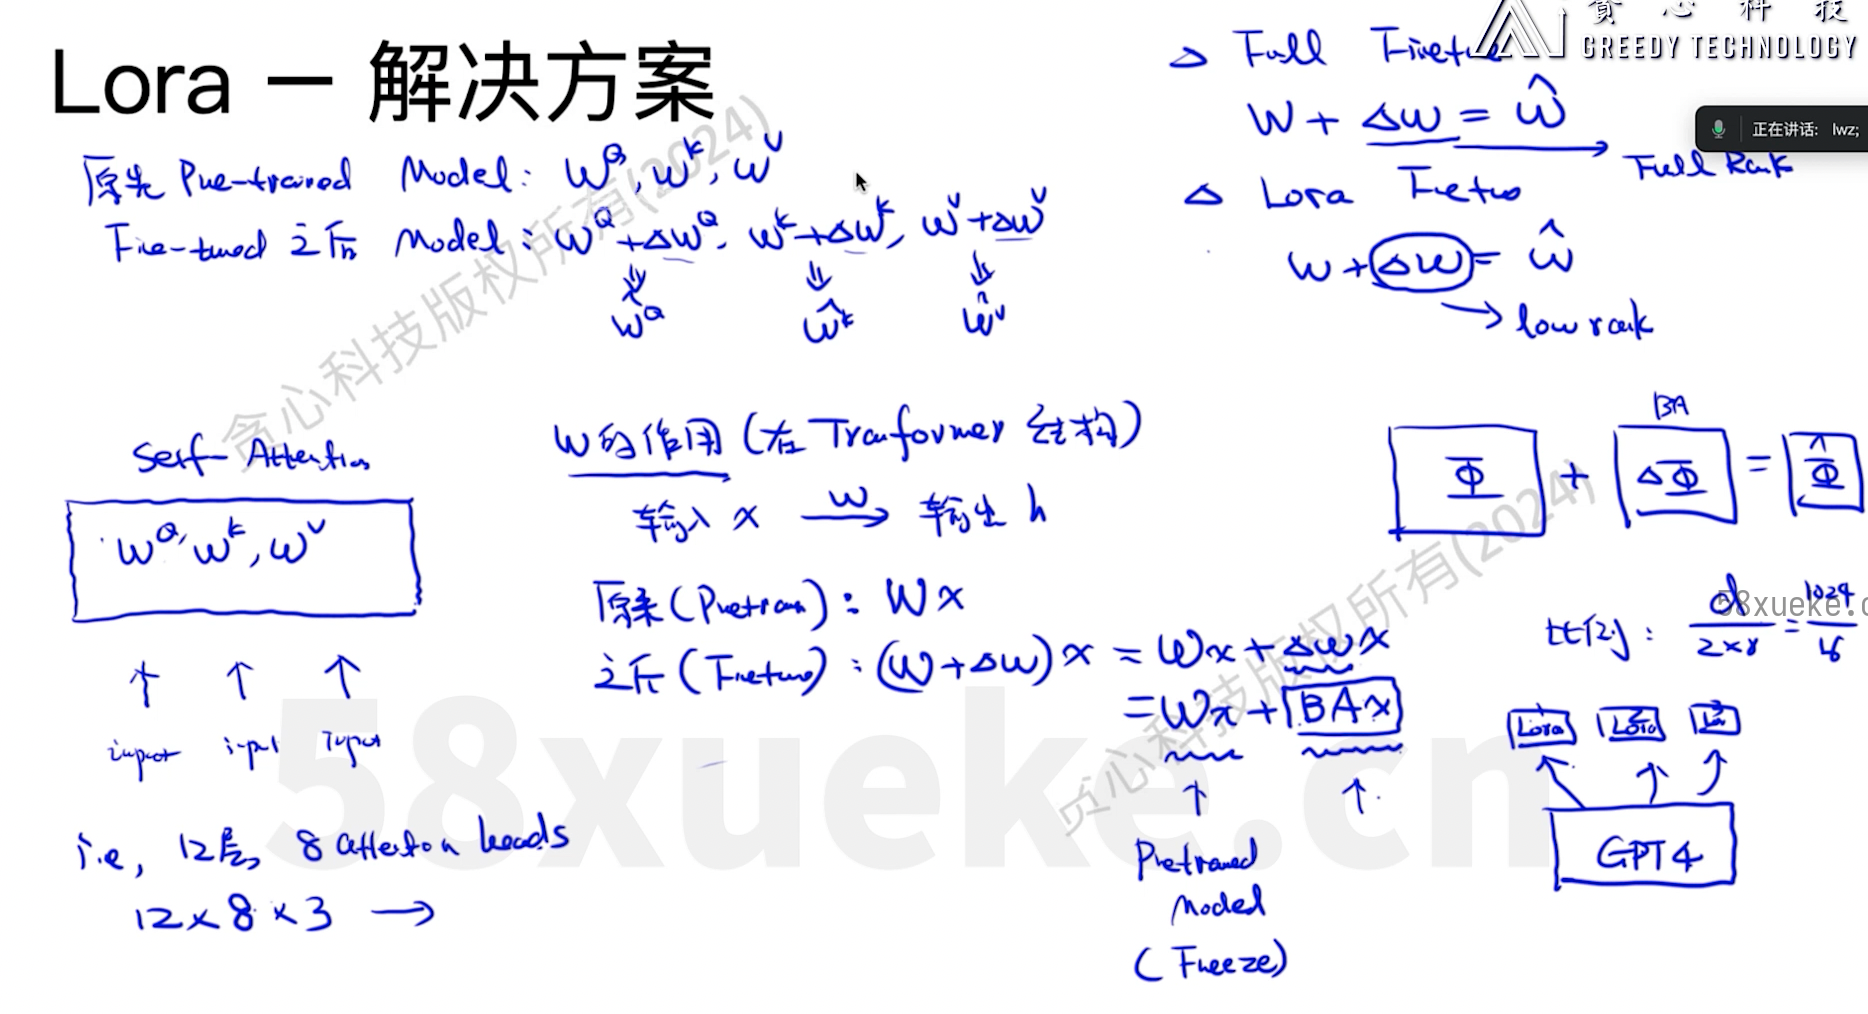 Lora — 解决方案
贪心科技
GREEDY TECHNOLOGY
正在讲话: lwz;
原先 Pre-trained Model: W^Q, W^K, W^V
Fine-tuned 之后 Model: W^Q+ΔW^Q, W^K+ΔW^K, W^V+ΔW^V
Ŵ^Q Ŵ^K Ŵ^V
△ Full Finetune
W + ΔW = Ŵ
Full Rank
△ Lora Finetune
W + ΔW = Ŵ
low rank
Self-Attention
W^Q, W^K, W^V
input input input
i.e, 12层, 8 attention heads
12 × 8 × 3 →
W的作用 (在 Transformer 结构)
输入 x →W 输出 h
原来 (Pretrain): Wx
之后 (Finetune): (W+ΔW)x = Wx + ΔWx
= Wx + BAx
Pretrained
Model
(Freeze)
BA
Φ + ΔΦ = Φ̂
比例: d/2×8 = 1024/16
Lora Lora Lora
GPT4
贪心科技版权所有(2024)
贪心科技版权所有(2024)
58xueke.cn
58xueke.c